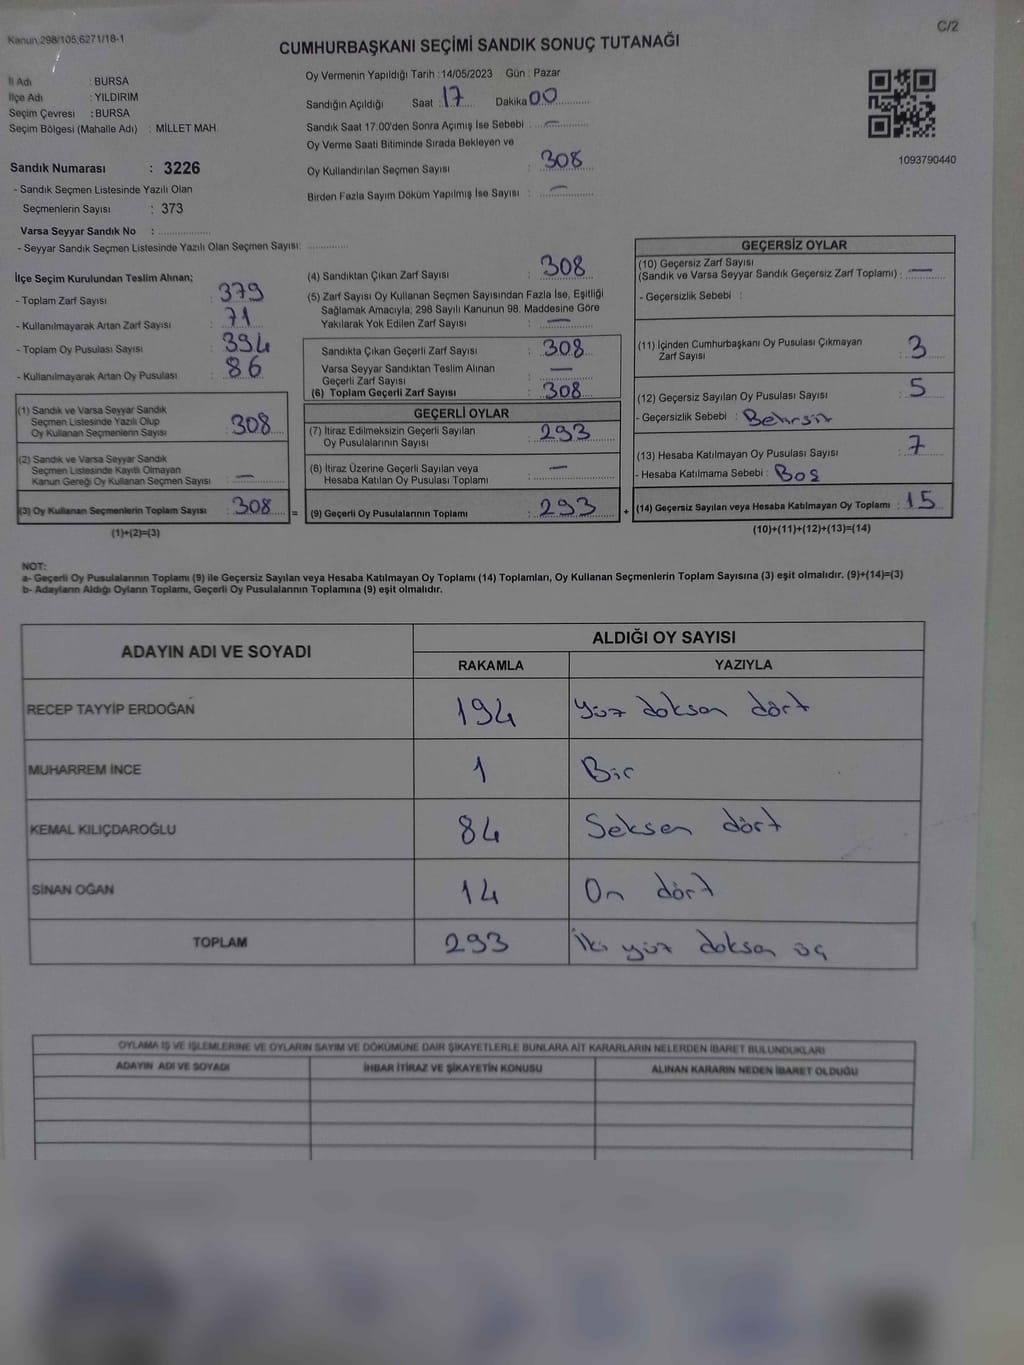 Kanun;298/105,6271/18-1
C/2
CUMHURBAŞKANI SEÇİMİ SANDIK SONUÇ TUTANAĞI
İl Adı : BURSA
İlçe Adı : YILDIRIM
Seçim Çevresi : BURSA
Seçim Bölgesi (Mahalle Adı) : MİLLET MAH.
Sandık Numarası : 3226
- Sandık Seçmen Listesinde Yazılı Olan
Seçmenlerin Sayısı : 373
Varsa Seyyar Sandık No : ..................
- Seyyar Sandık Seçmen Listesinde Yazılı Olan Seçmen Sayısı: ..............
Oy Vermenin Yapıldığı Tarih : 14/05/2023 Gün : Pazar
Sandığın Açıldığı Saat : 17 Dakika 00
Sandık Saat 17.00'den Sonra Açımış İse Sebebi : —
Oy Verme Saati Bitiminde Sırada Bekleyen ve
Oy Kullandırılan Seçmen Sayısı : 308
Birden Fazla Sayım Döküm Yapılmış İse Sayısı : —
1093790440
İlçe Seçim Kurulundan Teslim Alınan;
- Toplam Zarf Sayısı : 379
- Kullanılmayarak Artan Zarf Sayısı : 71
- Toplam Oy Pusulası Sayısı : 394
- Kullanılmayarak Artan Oy Pusulası : 86
(1) Sandık ve Varsa Seyyar Sandık
Seçmen Listesinde Yazılı Olup
Oy Kullanan Seçmenlerin Sayısı : 308
(2) Sandık ve Varsa Seyyar Sandık
Seçmen Listesinde Kayıtlı Olmayan
Kanun Gereği Oy Kullanan Seçmen Sayısı : —
(3) Oy Kullanan Seçmenlerin Toplam Sayısı : 308 =
(1)+(2)=(3)
(4) Sandıktan Çıkan Zarf Sayısı : 308
(5) Zarf Sayısı Oy Kullanan Seçmen Sayısından Fazla İse, Eşitliği
Sağlamak Amacıyla; 298 Sayılı Kanunun 98. Maddesine Göre
Yakılarak Yok Edilen Zarf Sayısı : —
Sandıkta Çıkan Geçerli Zarf Sayısı : 308
Varsa Seyyar Sandıktan Teslim Alınan
Geçerli Zarf Sayısı : —
(6) Toplam Geçerli Zarf Sayısı : 308
GEÇERLİ OYLAR
(7) İtiraz Edilmeksizin Geçerli Sayılan
Oy Pusulalarının Sayısı : 293
(8) İtiraz Üzerine Geçerli Sayılan veya
Hesaba Katılan Oy Pusulası Toplamı : —
(9) Geçerli Oy Pusulalarının Toplamı : 293 +
GEÇERSİZ OYLAR
(10) Geçersiz Zarf Sayısı
(Sandık ve Varsa Seyyar Sandık Geçersiz Zarf Toplamı) : —
- Geçersizlik Sebebi :
(11) İçinden Cumhurbaşkanı Oy Pusulası Çıkmayan
Zarf Sayısı : 3
(12) Geçersiz Sayılan Oy Pusulası Sayısı : 5
- Geçersizlik Sebebi :
(13) Hesaba Katılmayan Oy Pusulası Sayısı : 7
- Hesaba Katılmama Sebebi : Boş
(14) Geçersiz Sayılan veya Hesaba Katılmayan Oy Toplamı : 15
(10)+(11)+(12)+(13)=(14)
NOT:
a- Geçerli Oy Pusulalarının Toplamı (9) ile Geçersiz Sayılan veya Hesaba Katılmayan Oy Toplamı (14) Toplamları, Oy Kullanan Seçmenlerin Toplam Sayısına (3) eşit olmalıdır. (9)+(14)=(3)
b- Adayların Aldığı Oyların Toplamı, Geçerli Oy Pusulalarının Toplamına (9) eşit olmalıdır.
ADAYIN ADI VE SOYADI ALDIĞI OY SAYISI
RAKAMLA YAZIYLA
RECEP TAYYİP ERDOĞAN 194 Yüz doksan dört
MUHARREM İNCE 1 Bir
KEMAL KILIÇDAROĞLU 84 Seksen dört
SİNAN OĞAN 14 On dört
TOPLAM 293 İki yüz doksan üç
OYLAMA İŞ VE İŞLEMLERİNE VE OYLARIN SAYIM VE DÖKÜMÜNE DAİR ŞİKAYETLERLE BUNLARA AİT KARARLARIN NELERDEN İBARET BULUNDUKLARI
ADAYIN ADI VE SOYADI İHBAR İTİRAZ VE ŞİKAYETİN KONUSU ALINAN KARARIN NEDEN İBARET OLDUĞU